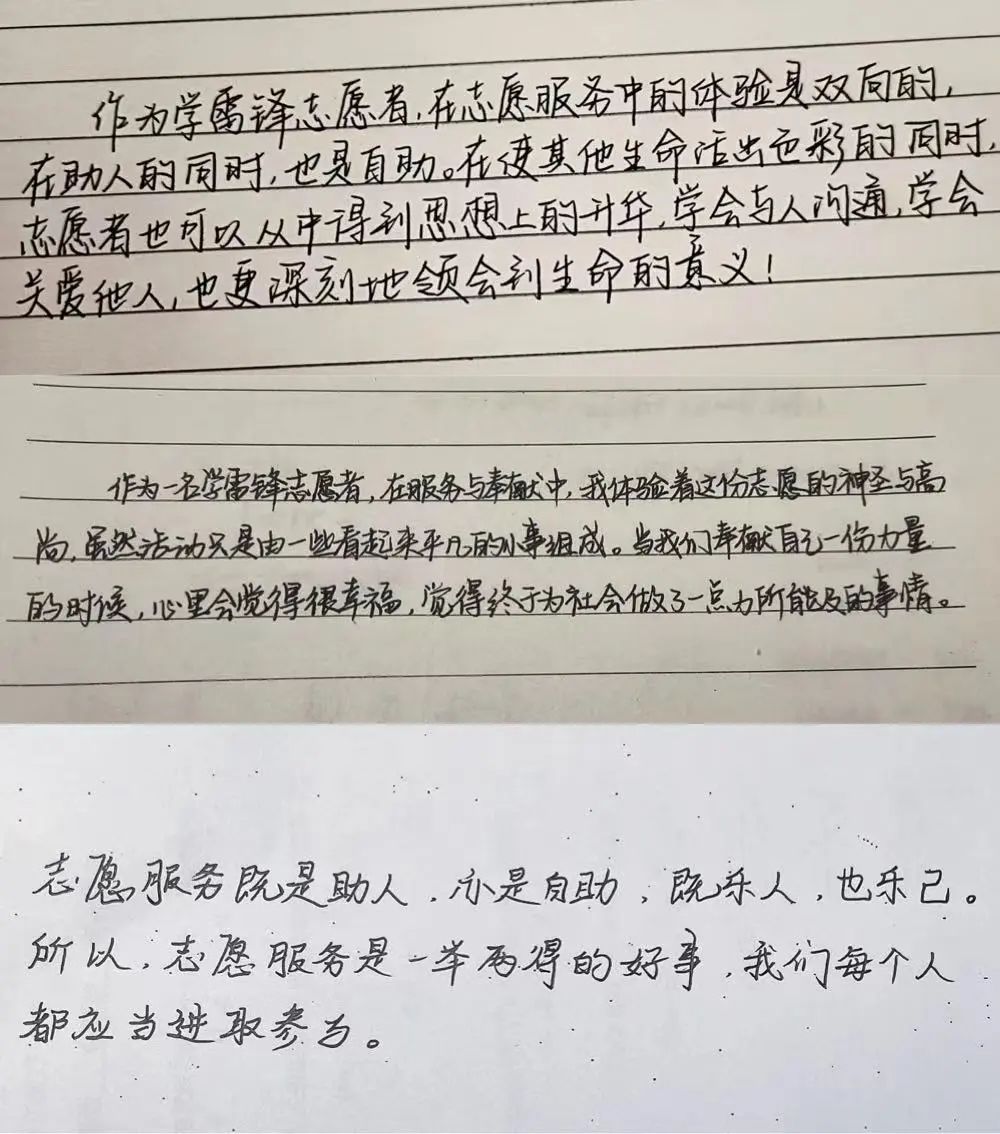 作为学雷锋志愿者,在志愿服务中的体验是双向的,
在助人的同时,也是自助。在使其他生命活出色彩的同时,
志愿者也可以从中得到思想上的升华,学会与人沟通,学会
关爱他人,也更深刻地领会到生命的意义!
作为一名学雷锋志愿者,在服务与奉献中,我体验着这份志愿的神圣与高
尚,虽然活动只是由一些看起来平凡的小事组成。当我们奉献自己一份力量
的时候,心里会觉得很幸福,觉得终于为社会做了一点力所能及的事情。
志愿服务既是助人,亦是自助,既乐人,也乐己。
所以,志愿服务是一举两得的好事,我们每个人
都应当进取参与。